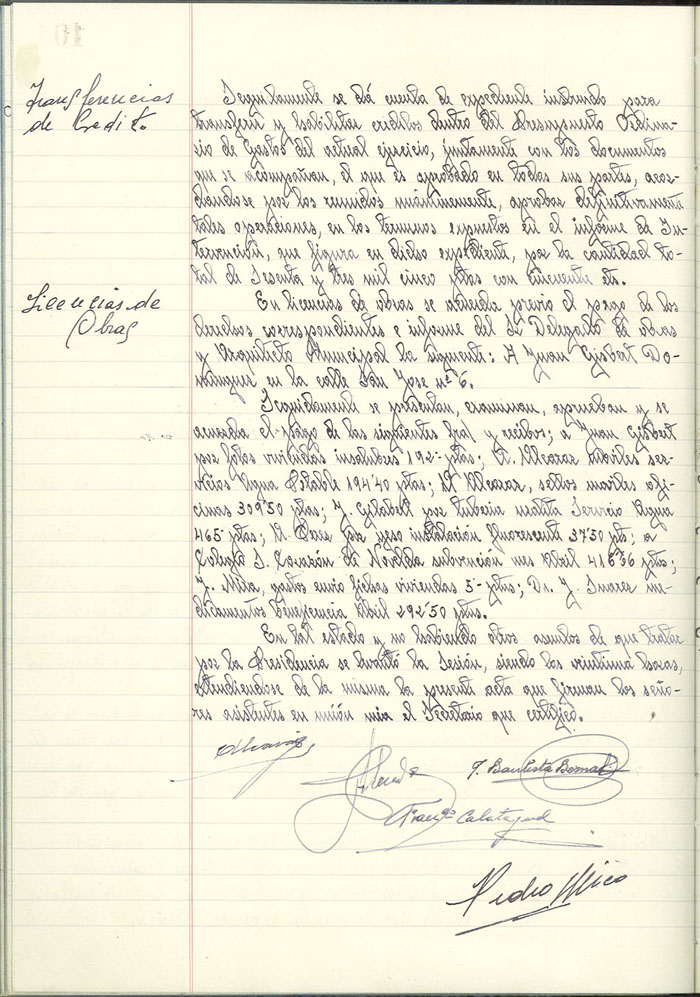 Transferencias
de Credito.
Seguidamente se dá cuenta de expediente instruido para
transferir y habilitar creditos dentro del Presupuesto Ordina-
rio de Gastos del actual ejercicio, juntamente con los documentos
que se acompañan, el que es aprobado en todas sus partes, acor-
dandose por los reunidos unanimemente, aprobar definitivamente
tales operaciones, en los terminos expuestos en el informe de In-
tervención, que figura en dicho expediente, por la cantidad to-
tal de Sesenta y tres mil cinco ptas con cincuenta cts.
Licencias de
Obras
En licencias de obras se acuerda previo el pago de los
derechos correspondientes e informe del Sr Delegado de obras
y Arquitecto Municipal la siguiente: A Juan Gisbert Do-
minguez, en la calle San Jose nº 6.
Seguidamente se presentan, examinan, aprueban y se
acuerda el pago de las siguientes fras y recibos; a Juan Gisbert
por fotos viviendas insalubres 192- ptas; A. Alcaraz moviles ser-
vicios Agua Potable 194'40 ptas; A. Alcaraz, sellos moviles ofi-
cinas 309'50 ptas; J. Gilabert por tuberia Servicio Agua
465- ptas; por yeso instalación fluorescente 37'50 pts; a
Colegio S. de Novelda subvención mes Abril 416'66 ptas;
J. Mira, gastos envio fichas viviendas 5- ptas; Dr. J. Suarez me-
dicamentos Beneficencia Abril 292'50 ptas.
En tal estado y no habiendo otros asuntos de que tratar
por la Presidencia se levantó la Sesión, siendo las veintiuna horas,
extendiendose de la misma la presente acta que firman los seño-
res asistentes en unión mia el Secretario que certifico.
J. Bautista Bernab
Franco Calatayud
Pedro Mico